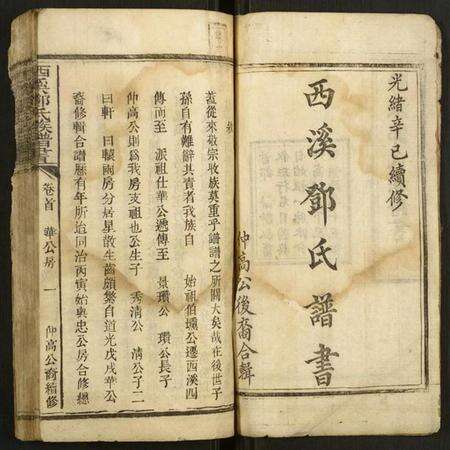 光緒辛巳續修
西溪鄧氏譜書
仲高公後裔合輯
蓋從來敬宗收族莫重乎譜譜之所關大矣哉在後世子
孫自有難辭其責者我族自　始祖伯壎公遷西溪四
傳而至　派祖仕華公遞傳至　景瓛公　瓛公長子
仲高公則爲我房支祖也公生子　秀清公　清公子二
曰軒　曰轅兩房分居星散生齒頗繁自道光戊戌華公
裔修輯合譜歷有年所迨同治丙寅始與忠公房合修總
西溪鄧氏族譜
卷首　華公房　一　仲高公裔續修